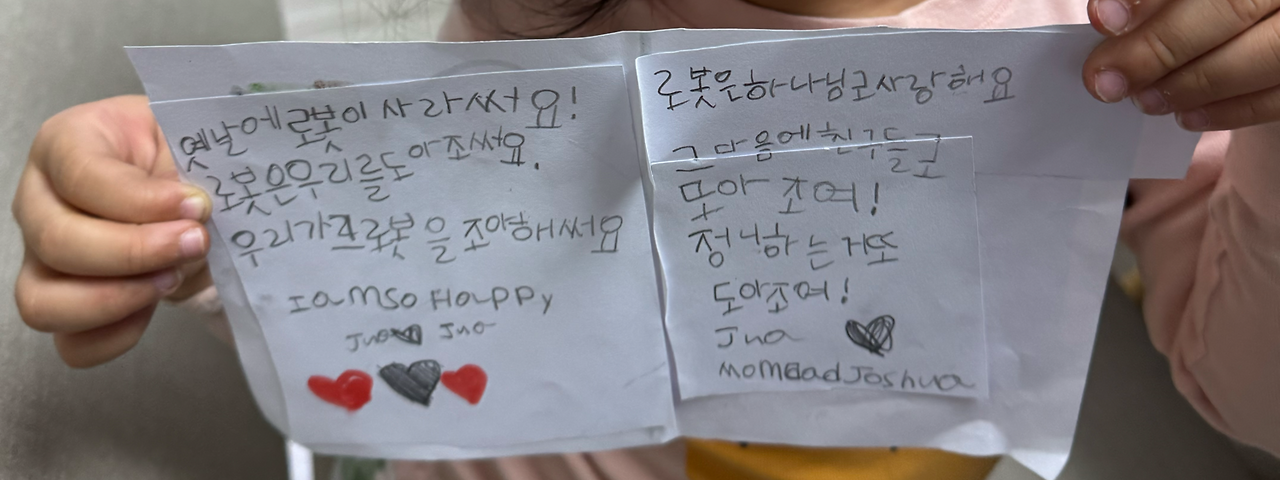 옛날에 로봇이 사라써요!
로봇은우리를도 아조써요.
우리가 로봇을 조아해써요
IamSO HaPPy
Jua Jua
로봇은하나님고사랑해요
그마음에친구들고
모아 조여!
정니하는거또
도아조여!
Jua
MOMDadJoshua